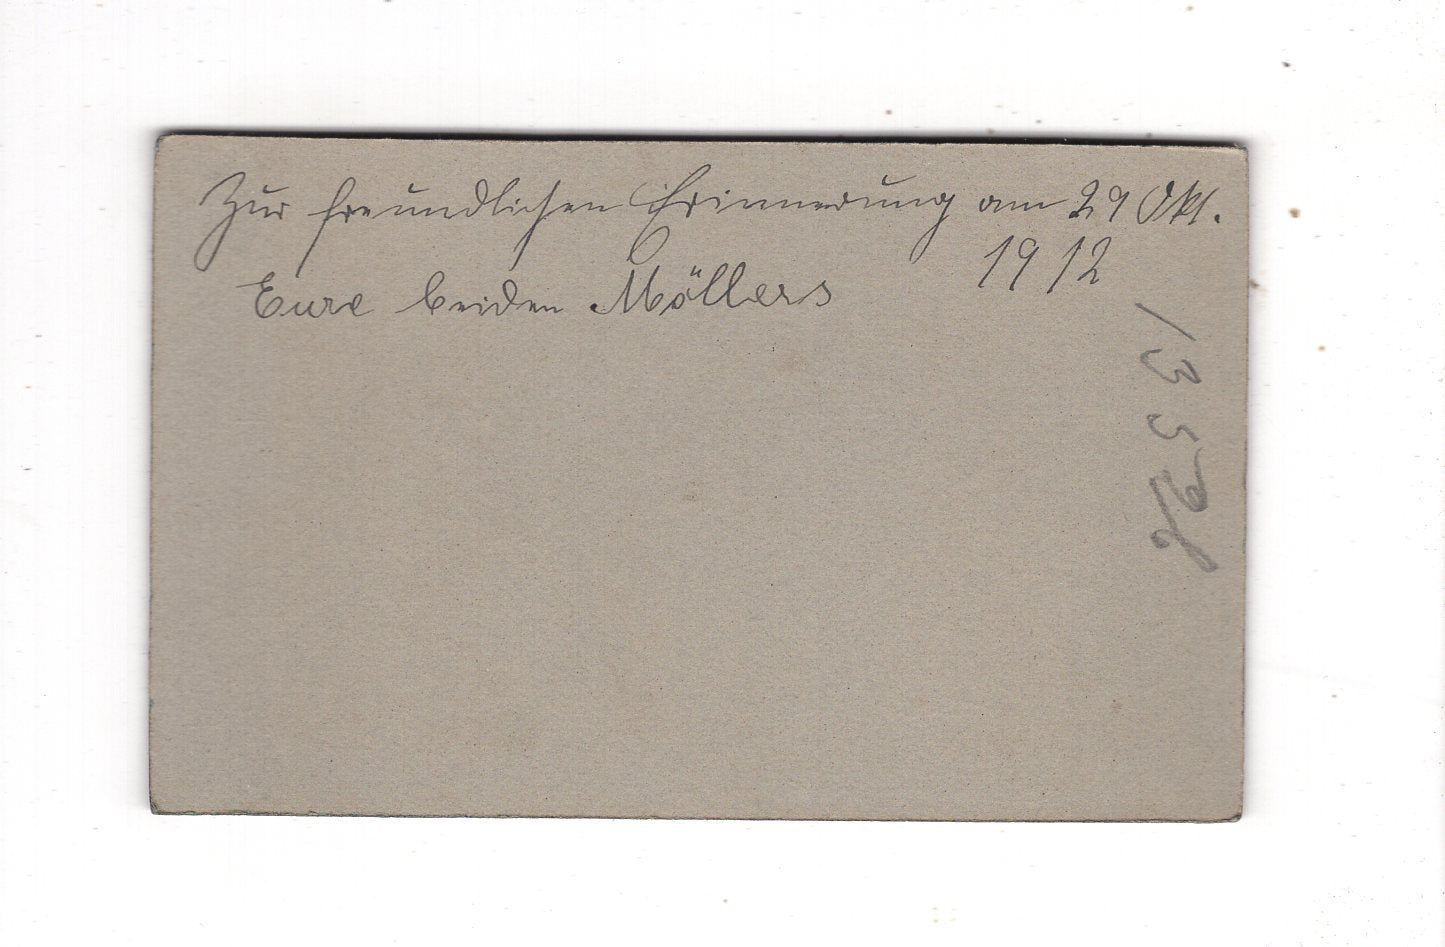 Zur freundlichen Erinnerung am 29 Okt.
1912
Eure beiden Möllers